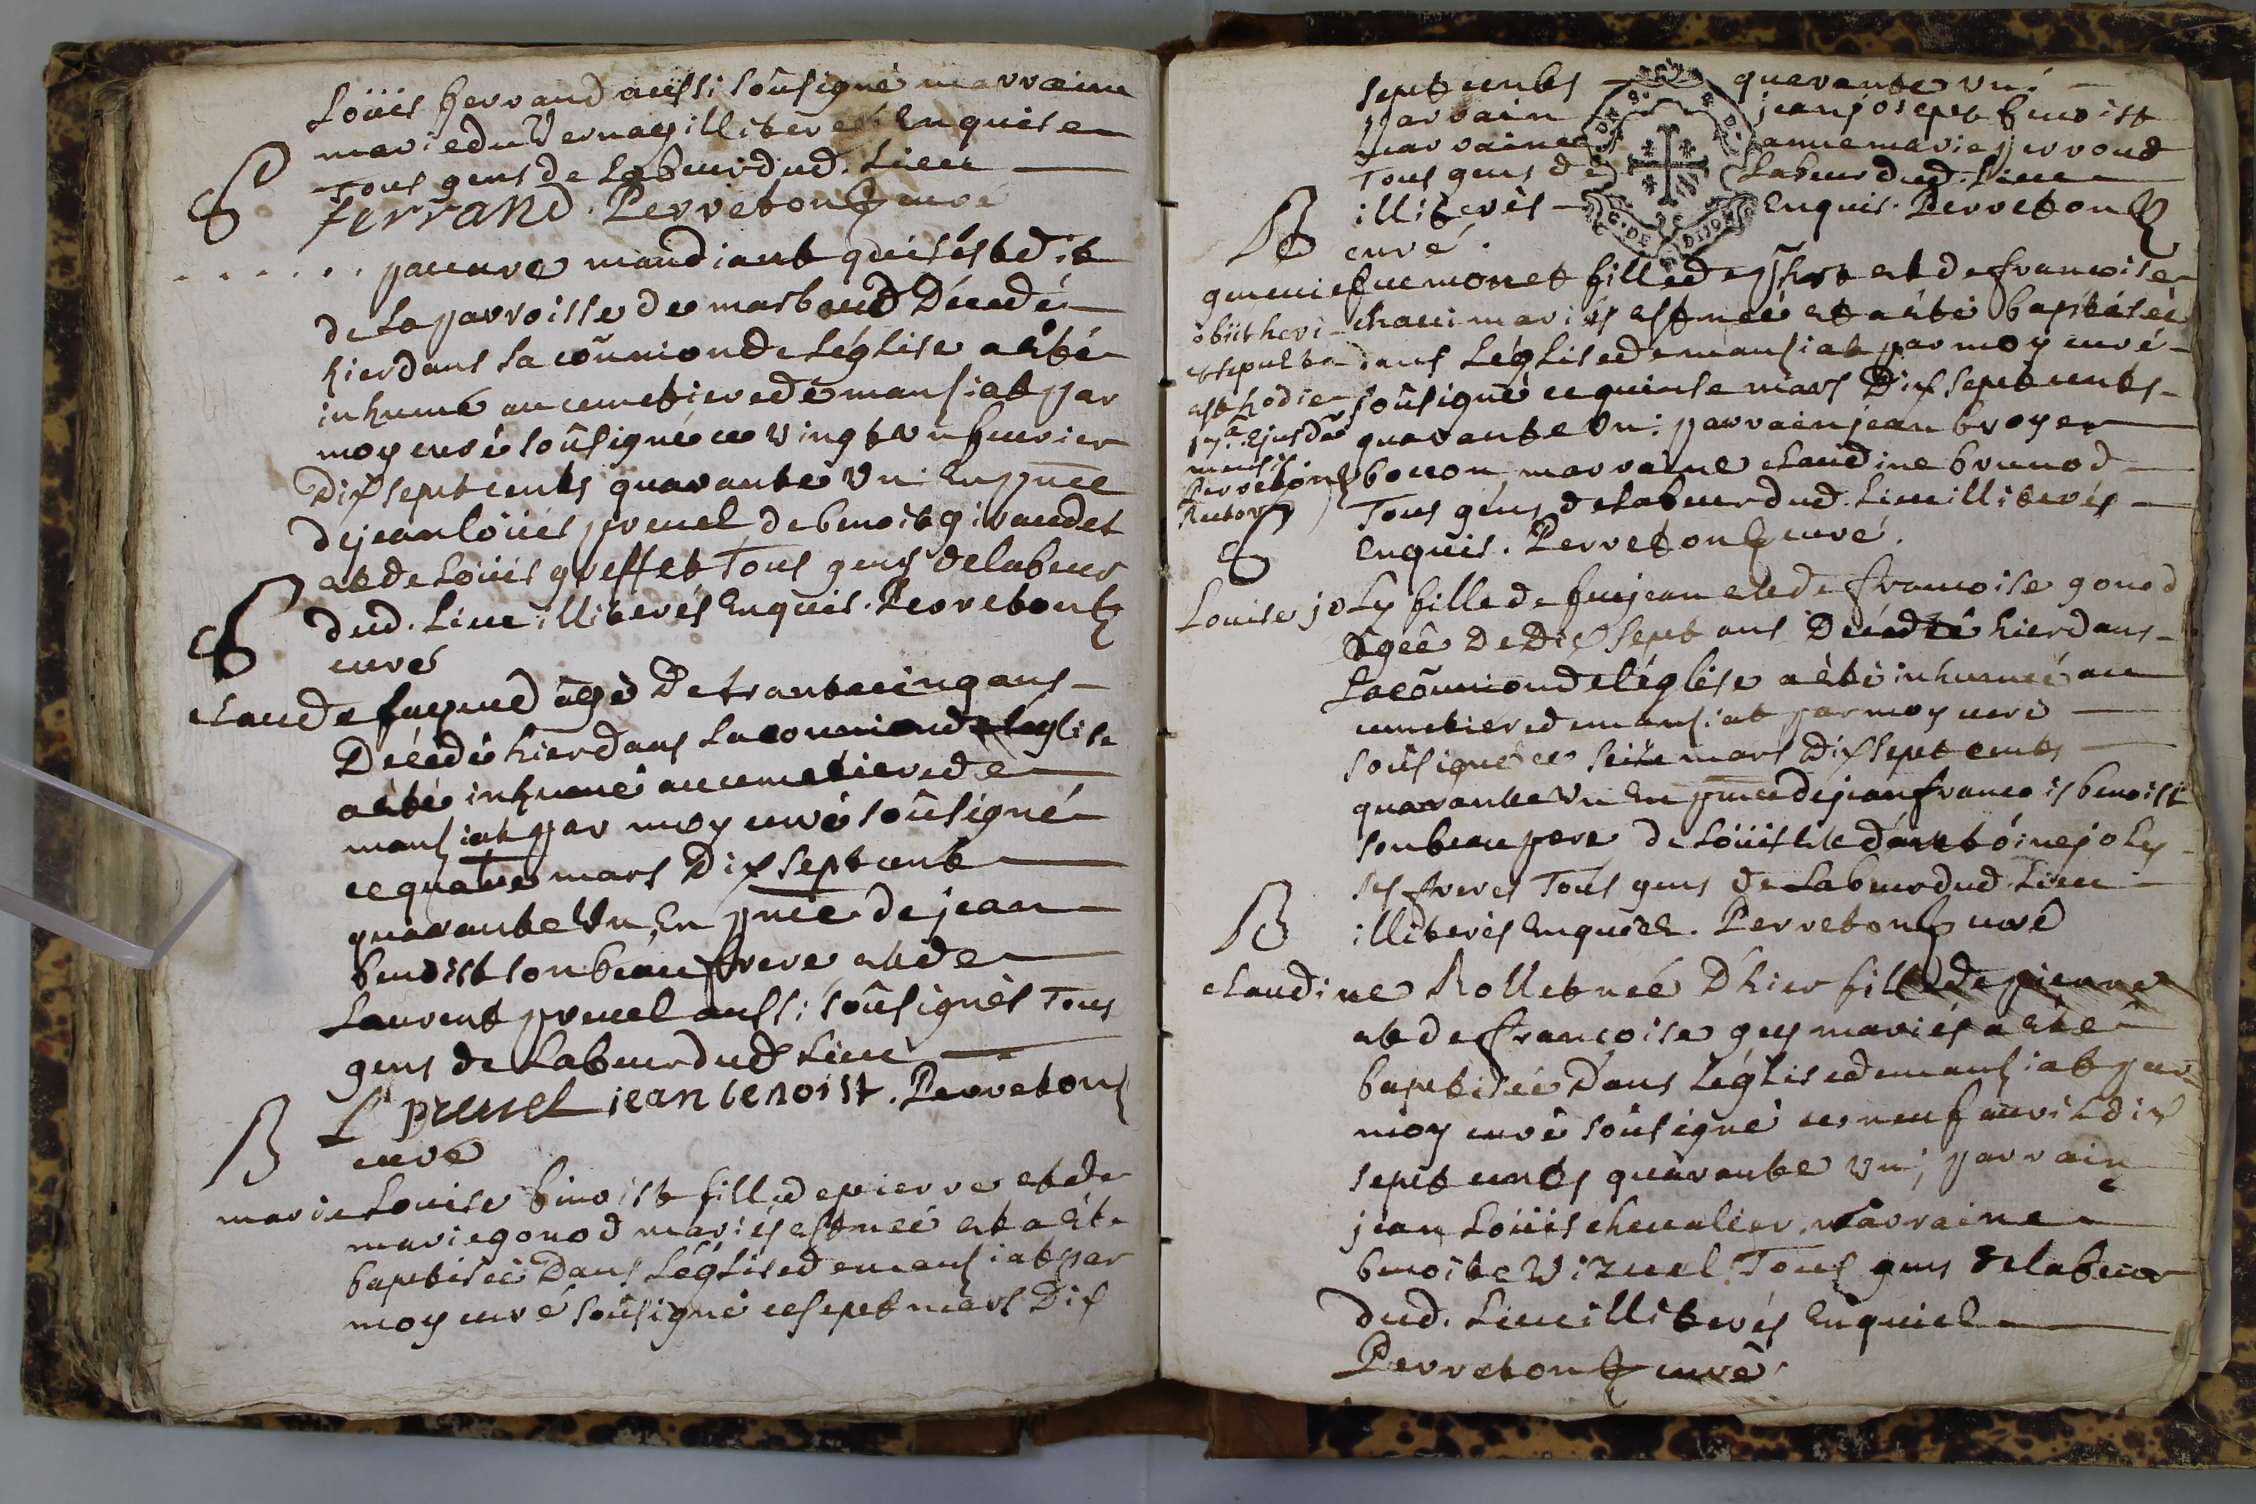 Loüis ferrand aussi soûsigné marraine
marie du Vernay illiteréé Enquise
Tous gens de Labeur dud. Lieu
S
ferrand. Perreton curé
. . . . . . pauure mandiant qui s'est dit
de La parroisse de marboud Décedé
hier dans La coũnion de Léglise a été
inhumé au cemetiere de mansiat par
moy curé soûsigné ce vingt vn feurier
Dix sept cents quarante Vn En pñce
de jean Loüis preuel de benoit giraudet
et de Loüis greffet Tous gens de labeur
dud. Lieu illiterés Enquis. Perreton
S
curé
Claude fuynud âgé De trante cinq ans
Décedé hier dans La counion de leglise
a été inhumé au cemetiere de
mansiat par moy curé soûsigné
ce quatre mars Dix sept cent
quarante Vn En pñce de jean
benoist son beau frere et de
Laurent preuel aussi soûsignés Tous
gens de Labeur dud Lieu
L preuel jean benoist. Perreton
B
curé
marie Louise benoist fille de pierre et de
marie gonod mariés est neé et a été
baptiseé Dans Léglise de mansiat par
moy curé soûsigné ce sept mars Dix
sept cents quarante vn.
parrain jean josept benoist
marraine anne marie perroud
Tous gens de Labeur dud. Lieu
illiterés Enquis. Perreton
B
curé.
DE. G. DE DIJON
geneuiefue monet fille de et de francoise
chaui mariés est neé et a été baptiseé
dans Léglise de mansiat par moy curé
soûsigné ce quinse mars Dix sept cents
quarante Vn: parrain jean broyer
bouon marraine claudine brunod
Tous géns de Labeur dud. Lieu illiterés
Enquis. Perreton curé.
obiit heri
et sepulta
est hodie
17ª Ejusdẽ
mensis
Perreton
Rector
S
Louise joLy fille de feu jean et de francoise gonod
âgeê De Dix sept ans Décedeê hier dans
La coũnion de léglise a été inhumeé au
cemetiere de mansiat par moy curé
soûsigné ce seize mars Dix sept cents
quarante Vn En pñce de jean francois benoist
son beau pere de Loüis et d'antoine joLy
ses freres Tous gens de Labeur dud Lieu
B
illiterés Enquis. Perreton curé
claudine Rollet neé D'hier fille de pierre
et de francoise gey mariés a été
baptiseé Dans Léglise de mansiat par
moy curé soûsigné ce neuf auril dix
sept cents quarante Vn; parrain
jean Loüis cheualier marraine
benoite Vizuel. Tous gens de labeur
dud. Lieu illiterés Enquis
Perreton curé.